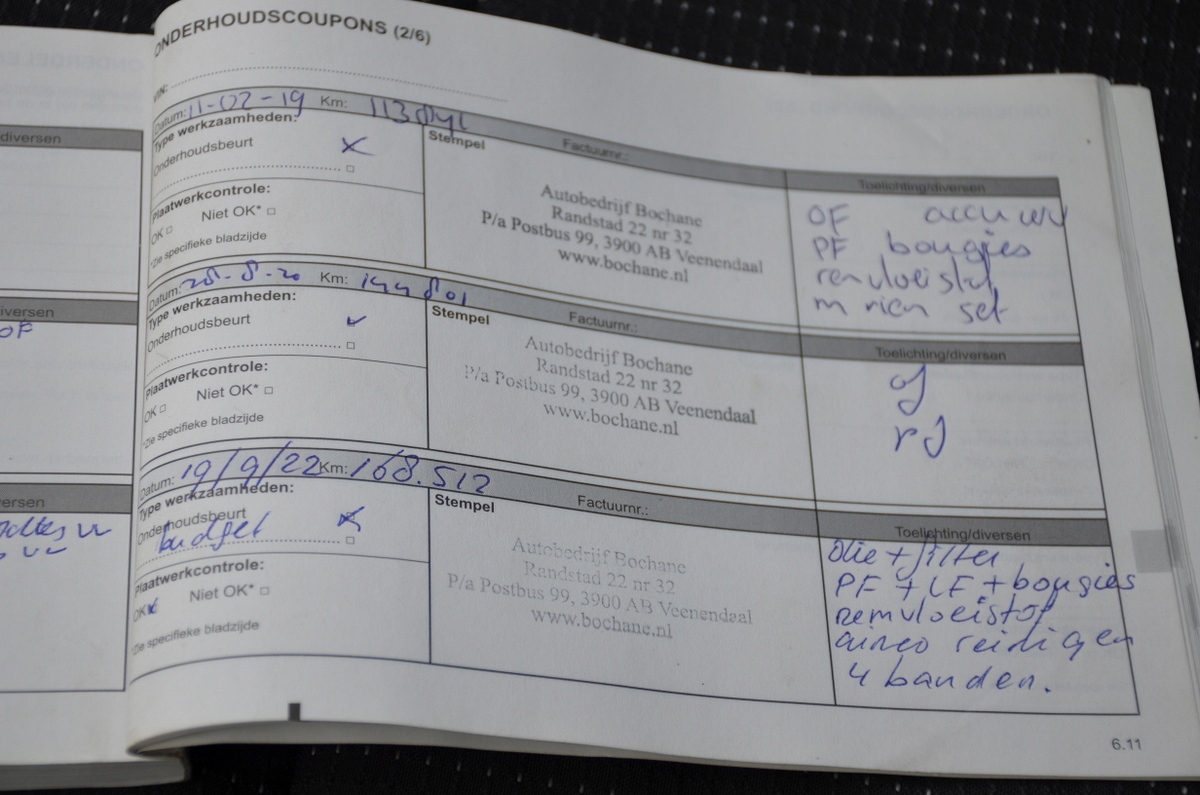 diversen
diversen
OF
ersen
ONDERHOUDSCOUPONS (2/6)
VIN:
Datum: 11-02-19 Km:
Type werkzaamheden:
Onderhoudsbeurt
Plaatwerkcontrole:
OK Niet OK*
*Zie specifieke bladzijde
Stempel Factuurnr.:
Autobedrijf Bochane
Randstad 22 nr 32
P/a Postbus 99, 3900 AB Veenendaal
www.bochane.nl
Toelichting/diversen
OF accu
PF bougies
Datum: 28-8-20 Km: 144801
Type werkzaamheden:
Onderhoudsbeurt
Plaatwerkcontrole:
OK Niet OK*
*Zie specifieke bladzijde
Stempel Factuurnr.:
Autobedrijf Bochane
Randstad 22 nr 32
P/a Postbus 99, 3900 AB Veenendaal
www.bochane.nl
Toelichting/diversen
of
Datum: 19/9/22 Km: 168.512
Type werkzaamheden:
Onderhoudsbeurt
budget
Plaatwerkcontrole:
OK Niet OK*
*Zie specifieke bladzijde
Stempel Factuurnr.:
Autobedrijf Bochane
Randstad 22 nr 32
P/a Postbus 99, 3900 AB Veenendaal
www.bochane.nl
Toelichting/diversen
Olie + filter
PF + LF + bougies
remvloeistof
airco reinigen
4 banden.
6.11